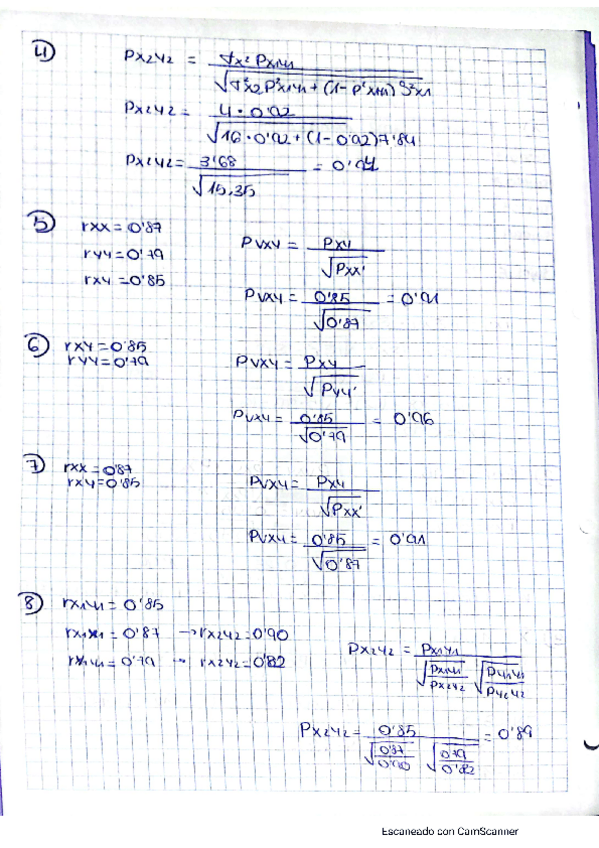 4) Px2y2 = σx2 Px1y1 / √(σ²x2 P²x1y1 + (1-P²x1y1) S²x1)
Px2y2 = 4·0'92 / √(16·0'92+(1-0'92)7'84
Px2y2 = 3'68 / √15,35 = 0'94
5) rxx = 0'87
ryy = 0'79
rxy = 0'85
Pvxy = Pxy / √Pxx'
Pvxy = 0'85 / √0'87 = 0'91
6) rxy = 0'85
ryy = 0'79
Pvxy = Pxy / √Pyy'
Pvxy = 0'85 / √0'79 = 0'96
7) rxx = 0'87
rxy = 0'85
Pvxy = Pxy / √Pxx'
Pvxy = 0'85 / √0'87 = 0'91
8) rx1y1 = 0'85
rx1x1 = 0'87 → rx2y2 = 0'90
= 0'79 → rx2y2 = 0'82
Px2y2 = Px1y1 / √(Px1y1 / Px2y2) √(Py1y1 / Py2y2)
Px2y2 = 0'85 / √(0'87 / 0'90) √(0'79 / 0'82) = 0'89
Escaneado con CamScanner